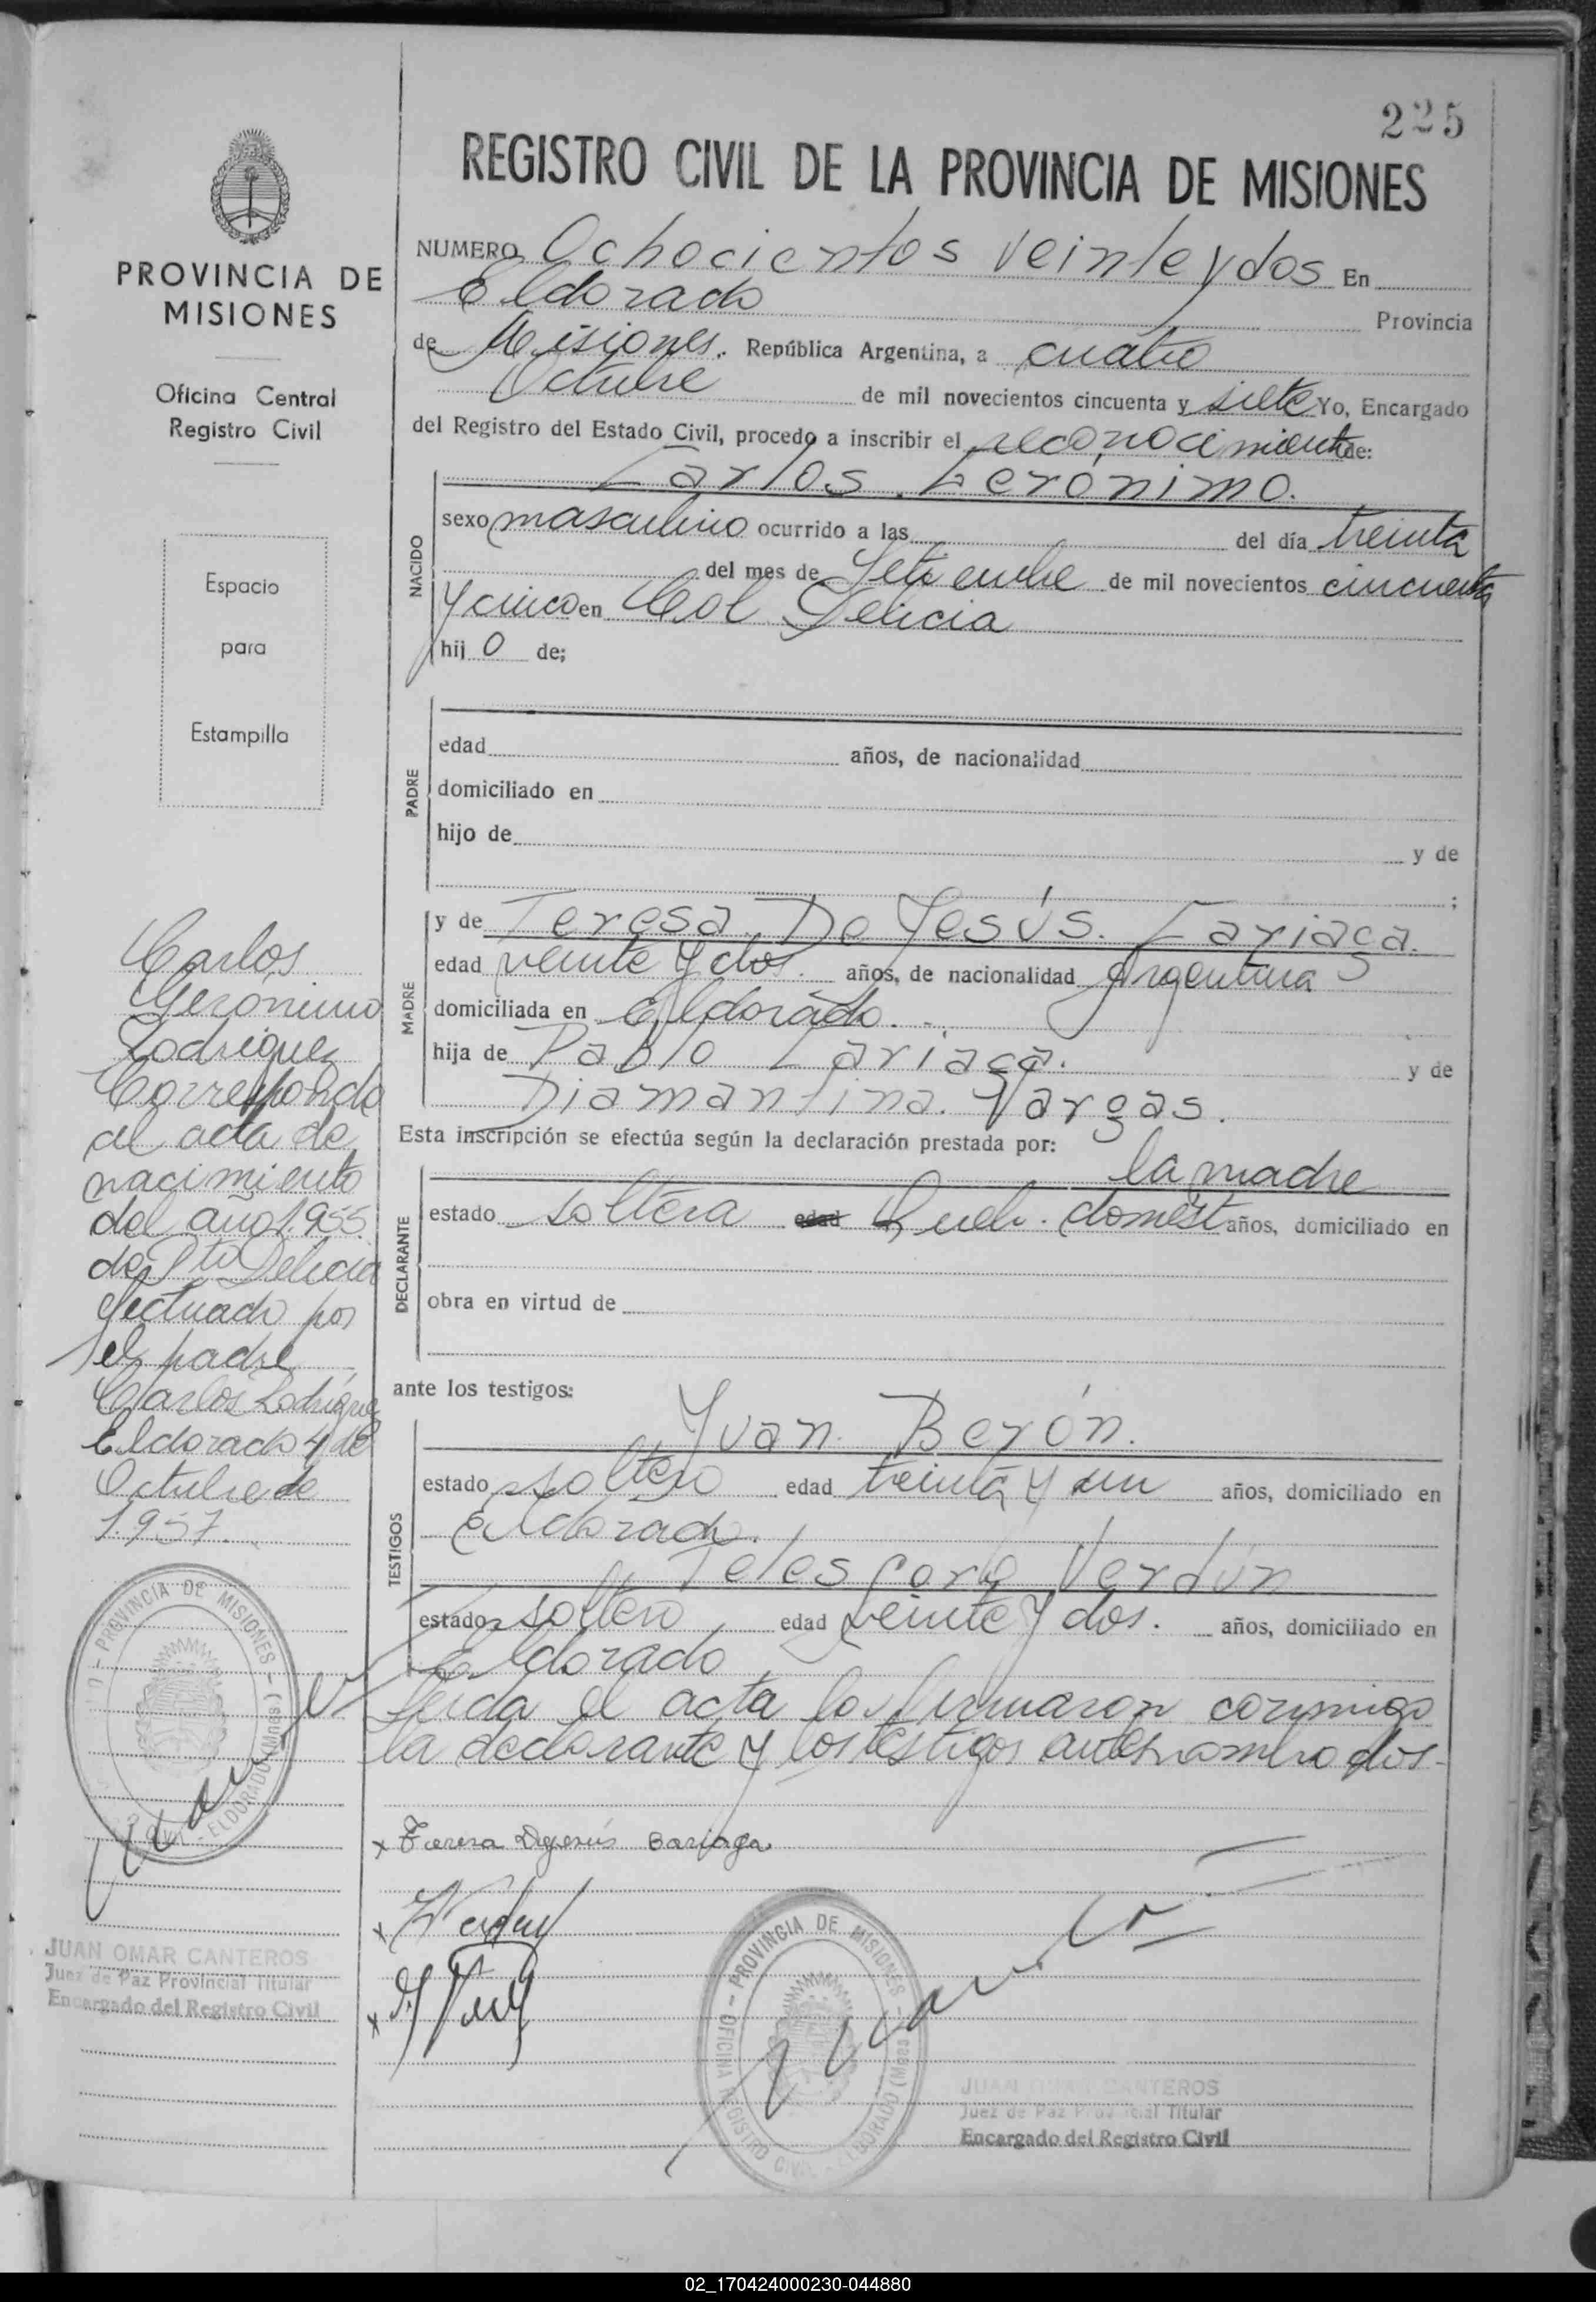 225
REGISTRO CIVIL DE LA PROVINCIA DE MISIONES
PROVINCIA DE
MISIONES
Oficina Central
Registro Civil
Espacio
para
Estampilla
NUMERO Ochocientos veinte y dos En
Eldorado Provincia
de Misiones. República Argentina, a cuatro
Octubre de mil novecientos cincuenta y siete Yo, Encargado
del Registro del Estado Civil, procedo a inscribir el reconocimiento de:
NACIDO
Carlos Gerónimo.
sexo masculino ocurrido a las del día treinta
del mes de Setiembre de mil novecientos cincuenta
y cinco en Col. Delicia
hij o de;
PADRE
edad años, de nacionalidad
domiciliado en
hijo de y de
;
MADRE
y de Teresa De Jesús. Cariaga.
edad veinte y dos. años, de nacionalidad Argentina
domiciliada en Eldorado.
hija de Pablo Cariaga. y de
Diamantina. Vargas.
Esta inscripción se efectúa según la declaración prestada por:
DECLARANTE
la madre
estado soltera edad domést años, domiciliado en
obra en virtud de
ante los testigos:
TESTIGOS
Juan Berón.
estado soltero edad treinta y un años, domiciliado en
Eldorado.
Telesforo Verdún
estado soltero edad veinte y dos. años, domiciliado en
Eldorado
Leida el acta la firmaron conmigo
la declarante y los testigos antes nombrados.
Carlos
Gerónimo
Rodriguez
Corresponde
al acta de
nacimiento
del año 1.955
de Pto Delicia
efectuado por
el padre
Carlos Rodríguez
Eldorado 4 de
Octubre de
1.957.
PROVINCIA DE MISIONES
ELDORADO (Mnes)
JUAN OMAR CANTEROS
Juez de Paz Provincial Titular
Encargado del Registro Civil
x Teresa Dejesús Cariaga
x Verdun
x
OFICINA REGISTRO CIVIL - ELDORADO (Mnes) - PROVINCIA DE MISIONES
JUAN OMAR CANTEROS
Juez de Paz Provincial Titular
Encargado del Registro Civil
02_170424000230-044880